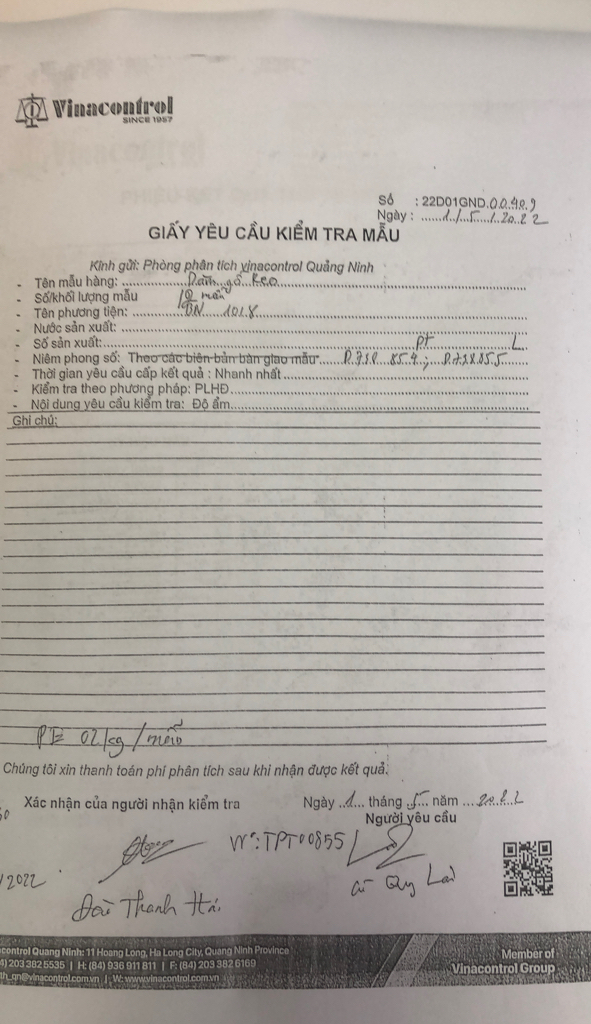 Vinacontrol
SINCE 1957
Số : 22D01GND.00489
Ngày : 1/5/2022
GIẤY YÊU CẦU KIỂM TRA MẪU
Kính gửi: Phòng phân tích vinacontrol Quảng Ninh
- Tên mẫu hàng: Dăm gỗ keo
- Số/khối lượng mẫu 12 mẫu
- Tên phương tiện: ĐN 1018
- Nước sản xuất:
- Số sản xuất: PT L
- Niêm phong số: Theo các biên bản bàn giao mẫu
- Thời gian yêu cầu cấp kết quả : Nhanh nhất
- Kiểm tra theo phương pháp: PLHĐ
- Nội dung yêu cầu kiểm tra: Độ ẩm
Ghi chú:
02 kg/mẫu
Chúng tôi xin thanh toán phí phân tích sau khi nhận được kết quả.
Xác nhận của người nhận kiểm tra Ngày 1 tháng 5 năm 2022
Người yêu cầu
Nº: TPT00855
/2022
Đào Thanh Hải
Quy
control Quang Ninh: 11 Hoang Long, Ha Long City, Quang Ninh Province
4) 203 382 5535 | H: (84) 936 911 811 | F: (84) 203 382 6169
th_qn@vinacontrol.com.vn | W: www.vinacontrol.com.vn
Member of
Vinacontrol Group